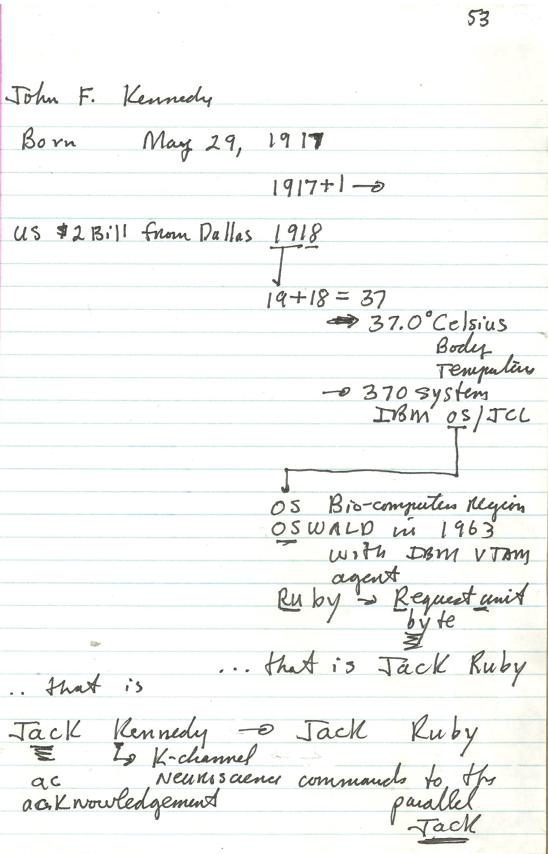 53
John F. Kennedy
Born May 29, 1917
1917+1 →
US $2 Bill from Dallas 1918
19+18 = 37
⇒ 37.0° Celsius
Body
Temperature
→ 370 System
IBM OS/JCL
OS Bio-computer Region
OSWALD in 1963
with IBM VTAM
agent
Ruby → Request unit
byte
... that is Jack Ruby
.. that is
Jack Kennedy → Jack Ruby
↳ K-channel
ac Neuroscience commands to the
acknowledgement parallel
Jack